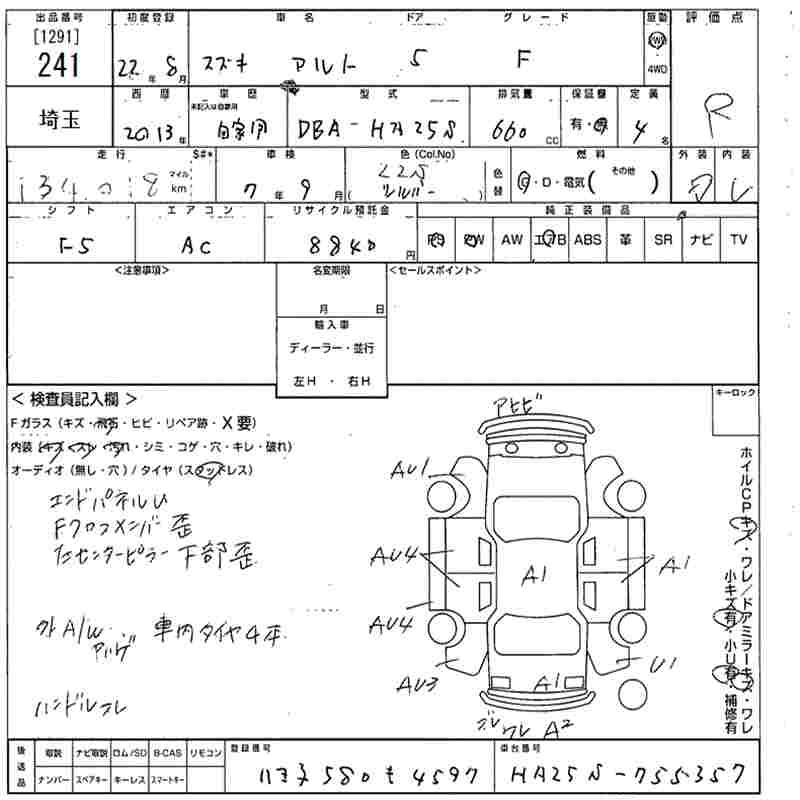 出品番号 初度登録 車名 ドア グレード 駆動 評価点
[1291]
241 22年 8月 スズキ アルト 5 F 2WD 4WD
西暦 車歴 型式 排気量 保証書 定員
未記入は自家用
埼玉 2013年 自家用 DBA-HA25S 660cc 有・無 4名 R
走行 $#* 車検 色(Col.No) 燃料 外装 内装
134,018 マイル km 7年 9月 Z2S シルバー 色替 G・D・電気( その他 )
シフト エアコン リサイクル預託金 純正装備品
F5 AC 8840円 PS PW AW エアB ABS 革 SR ナビ TV
<注意事項> 名変期限 <セールスポイント>
月 日
輸入車
ディーラー・並行
左H ・ 右H
< 検査員記入欄 > キーロック
Fガラス(キズ・飛石・ヒビ・リペア跡・X要)
内装(キズ・スレ・汚れ・シミ・コゲ・穴・キレ・破れ)
オーディオ(無し・穴)/タイヤ(スタッドレス)
エンドパネルU
Fクロスメンバー歪
左センターピラー下部歪
外A/W 車内タイヤ4本
ハンドルスレ
アヒビ
AU1
AU4
A1
A1
AU4
AU3
U1
A1
ワレ A2
ホイルCPキズ・ワレ/ドアミラーキズ・ワレ
小キズ有・小U有・補修有
後送品 取説 ナビ取説 ロム/SD B-CAS リモコン 登録番号 車台番号
ナンバー スペアキー キーレス スマートキー 580 も 4597 HA25S-755357